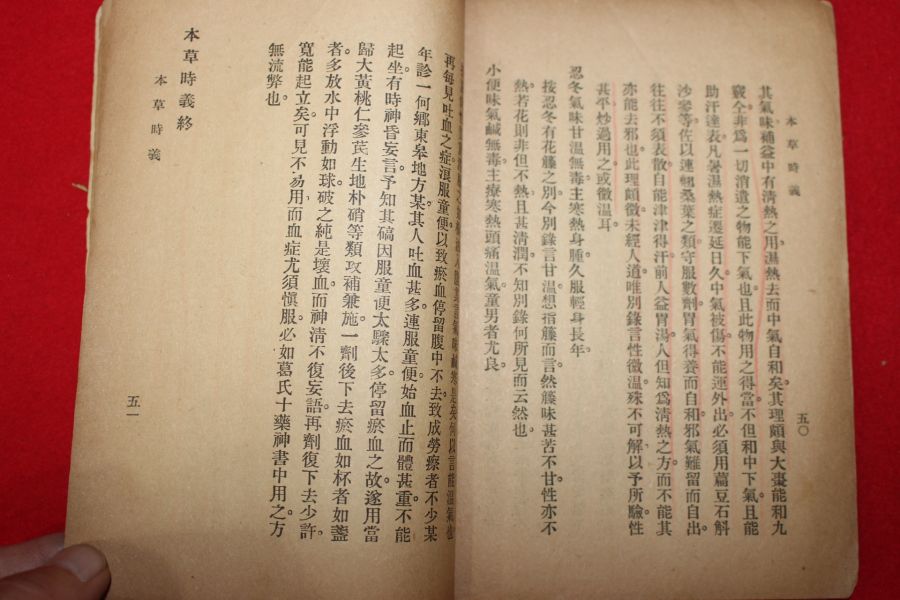 本草時義
五〇
其氣味補益中有清熱之用。濕熱去而中氣自和矣。其理頗與大棗能和九
竅。今非爲一切消遣之物能下氣也。且此物用之得當。不但和中下氣。且能
助汗達表。凡暑濕熱症遷延日久。中氣被傷。不能運外出。必須用藊豆石斛
沙參等佐以連翹桑葉之類。守服數劑。胃氣得養而自和。邪氣難留而自出。
往往不須表散。自能津津得汗。前人益胃湯。人但知爲清熱之方。而不能其
亦能去邪也。此理頗微。未經人道。唯別錄言性微溫。殊不可解。以予所驗性
甚平。炒過用之。或微溫耳。
忍冬氣味甘溫無毒。主寒熱身腫。久服輕身長年。
按忍冬有花藤之別。今別錄言甘溫。想指藤而言。然藤味甚苦不甘。性亦不
熱。若花則非但不熱。且甚清潤。不知別錄何所見而云然也。
小便味氣鹹無毒。主療寒熱頭痛溫氣。童男者尤良。
再每見吐血之症。浪服童便。以致瘀血停留腹中不去。致成勞瘵者不少。某
年診一何鄉東皋地方某。其人吐血甚多。連服童便。始血止而體甚重。不能
起坐。有時神昏妄言。予知其碻因服童便太驟太多。停留瘀血之故。遂用當
歸大黃桃仁參芪生地朴硝等類。攻補兼施。一劑後下去瘀血如杯者如盞
者多。放水中浮動如球。破之純是壞血。而神清不復妄語。再劑復下去少許。
寬能起立矣。可見不易用。而血症尤須慎服。必如葛氏十藥神書中用之。方
無流弊也。
本草時義終
本草時義
五一